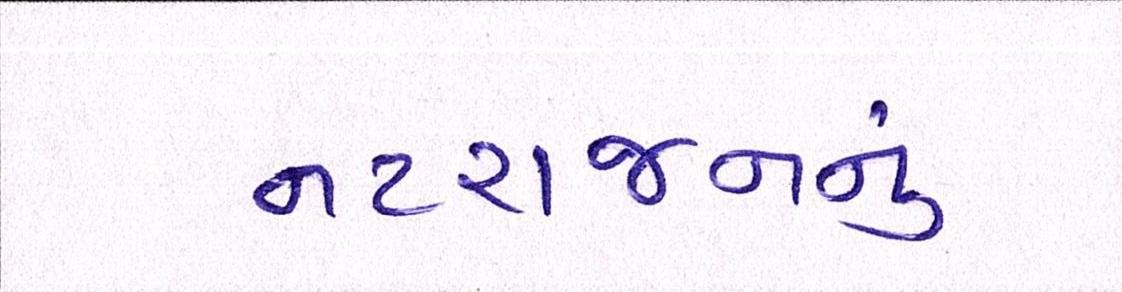 નટરાજનનું